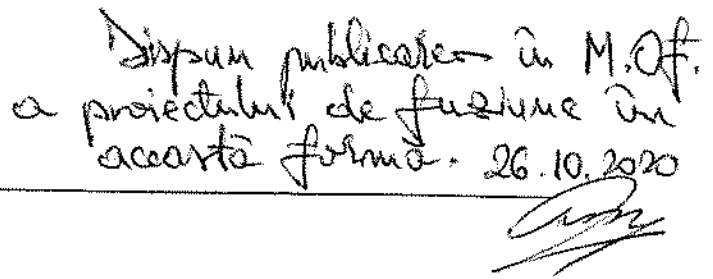 Dispun publicarea în M.Of.
a proiectului de fuziune în
această formă. 26.10.2020